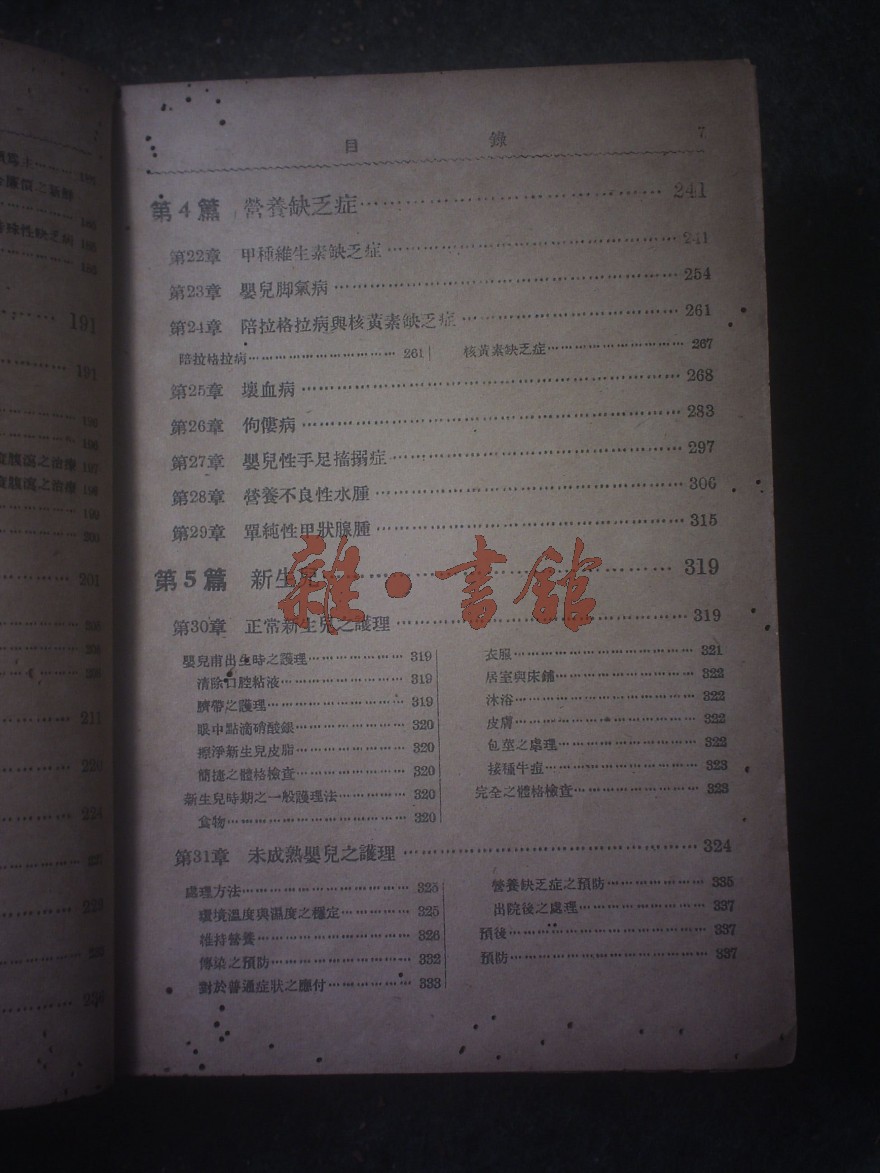 目錄 7
第4篇 營養缺乏症 241
第22章 甲種維生素缺乏症 241
第23章 嬰兒脚氣病 254
第24章 陪拉格拉病與核黃素缺乏症 261
陪拉格拉病 261
核黃素缺乏症 267
第25章 壞血病 268
第26章 佝僂病 283
第27章 嬰兒性手足搐搦症 297
第28章 營養不良性水腫 306
第29章 單純性甲狀腺腫 315
第5篇 新生兒 319
雜·書館
第30章 正常新生兒之護理 319
嬰兒甫出生時之護理 319
清除口腔粘液 319
臍帶之護理 319
眼中點滴硝酸銀 320
擦淨新生兒皮脂 320
簡捷之體格檢查 320
新生兒時期之一般護理法 320
食物 320
衣服 321
居室與床鋪 322
沐浴 322
皮膚 322
包莖之處理 322
接種牛痘 323
完全之體格檢查 323
第31章 未成熟嬰兒之護理 324
處理方法 325
環境溫度與濕度之穩定 325
維持營養 326
傳染之預防 332
對於普通症狀之應付 333
營養缺乏症之預防 335
出院後之處理 337
預後 337
預防 337
191
191
195
196
食腹瀉之治療 197
食腹瀉之治療 198
199
200
201
211
224